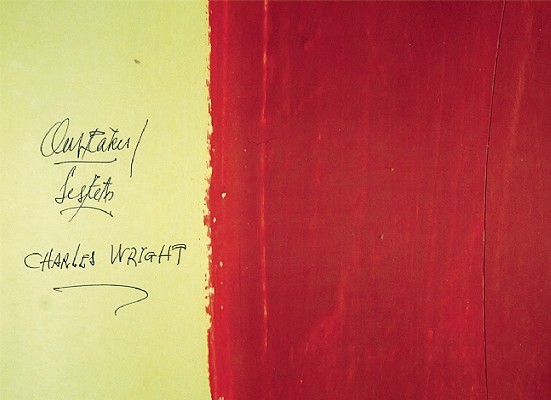 Outtakes/
Sestets
CHARLES WRIGHT